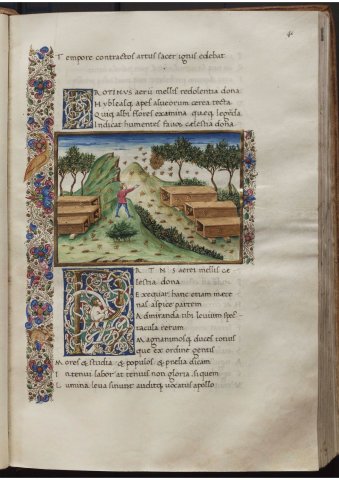 T empore contractos artus sacer ignis edebat
P ROTINVS aerii mellis redolentia dona
H yblęasq; apes alueorum cerea tecta
Q uiq; albi flores examina quæq; legęda
I ndicat humentes fauos cælestia dona
aerei mellis ce
lestia dona
E xequar hanc etiam mæce
nas aspice partem
A dmiranda tibi leuium spec
tacula rerum
M agnanimosq; duces totius
que ex ordine gentis
M ores & studia & populos & prelia dicam
I n tenui labor at tenuis non gloria si quem
L umina leua sinunt auditq; uocatus apollo